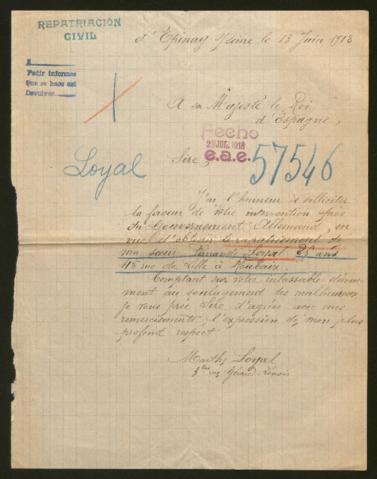 REPATRIACIÓN
CIVIL
d'Epinay Seine le 13 Juin 1918
A
Pedir informes
Que se hace así
Devolver
A sa Majesté le Roi
d'Espagne,
Fecho
29 JUL. 1918
e.a.e.
57546
Loyal
Sire,
J'ai l'honneur de solliciter
la faveur de votre intervention auprès
du Gouvernement Allemand, en
vue d'obtenir le rapatriement de
ma soeur Loyal 23 ans
48 rue de Lille à Roubaix.
Comptant sur votre inlassable dévoue-
ment au soulagement des malheureux
je vous prie Sire d'agréer avec mes
remerciements l'expression de mon plus
profond respect
Marthe Loyal